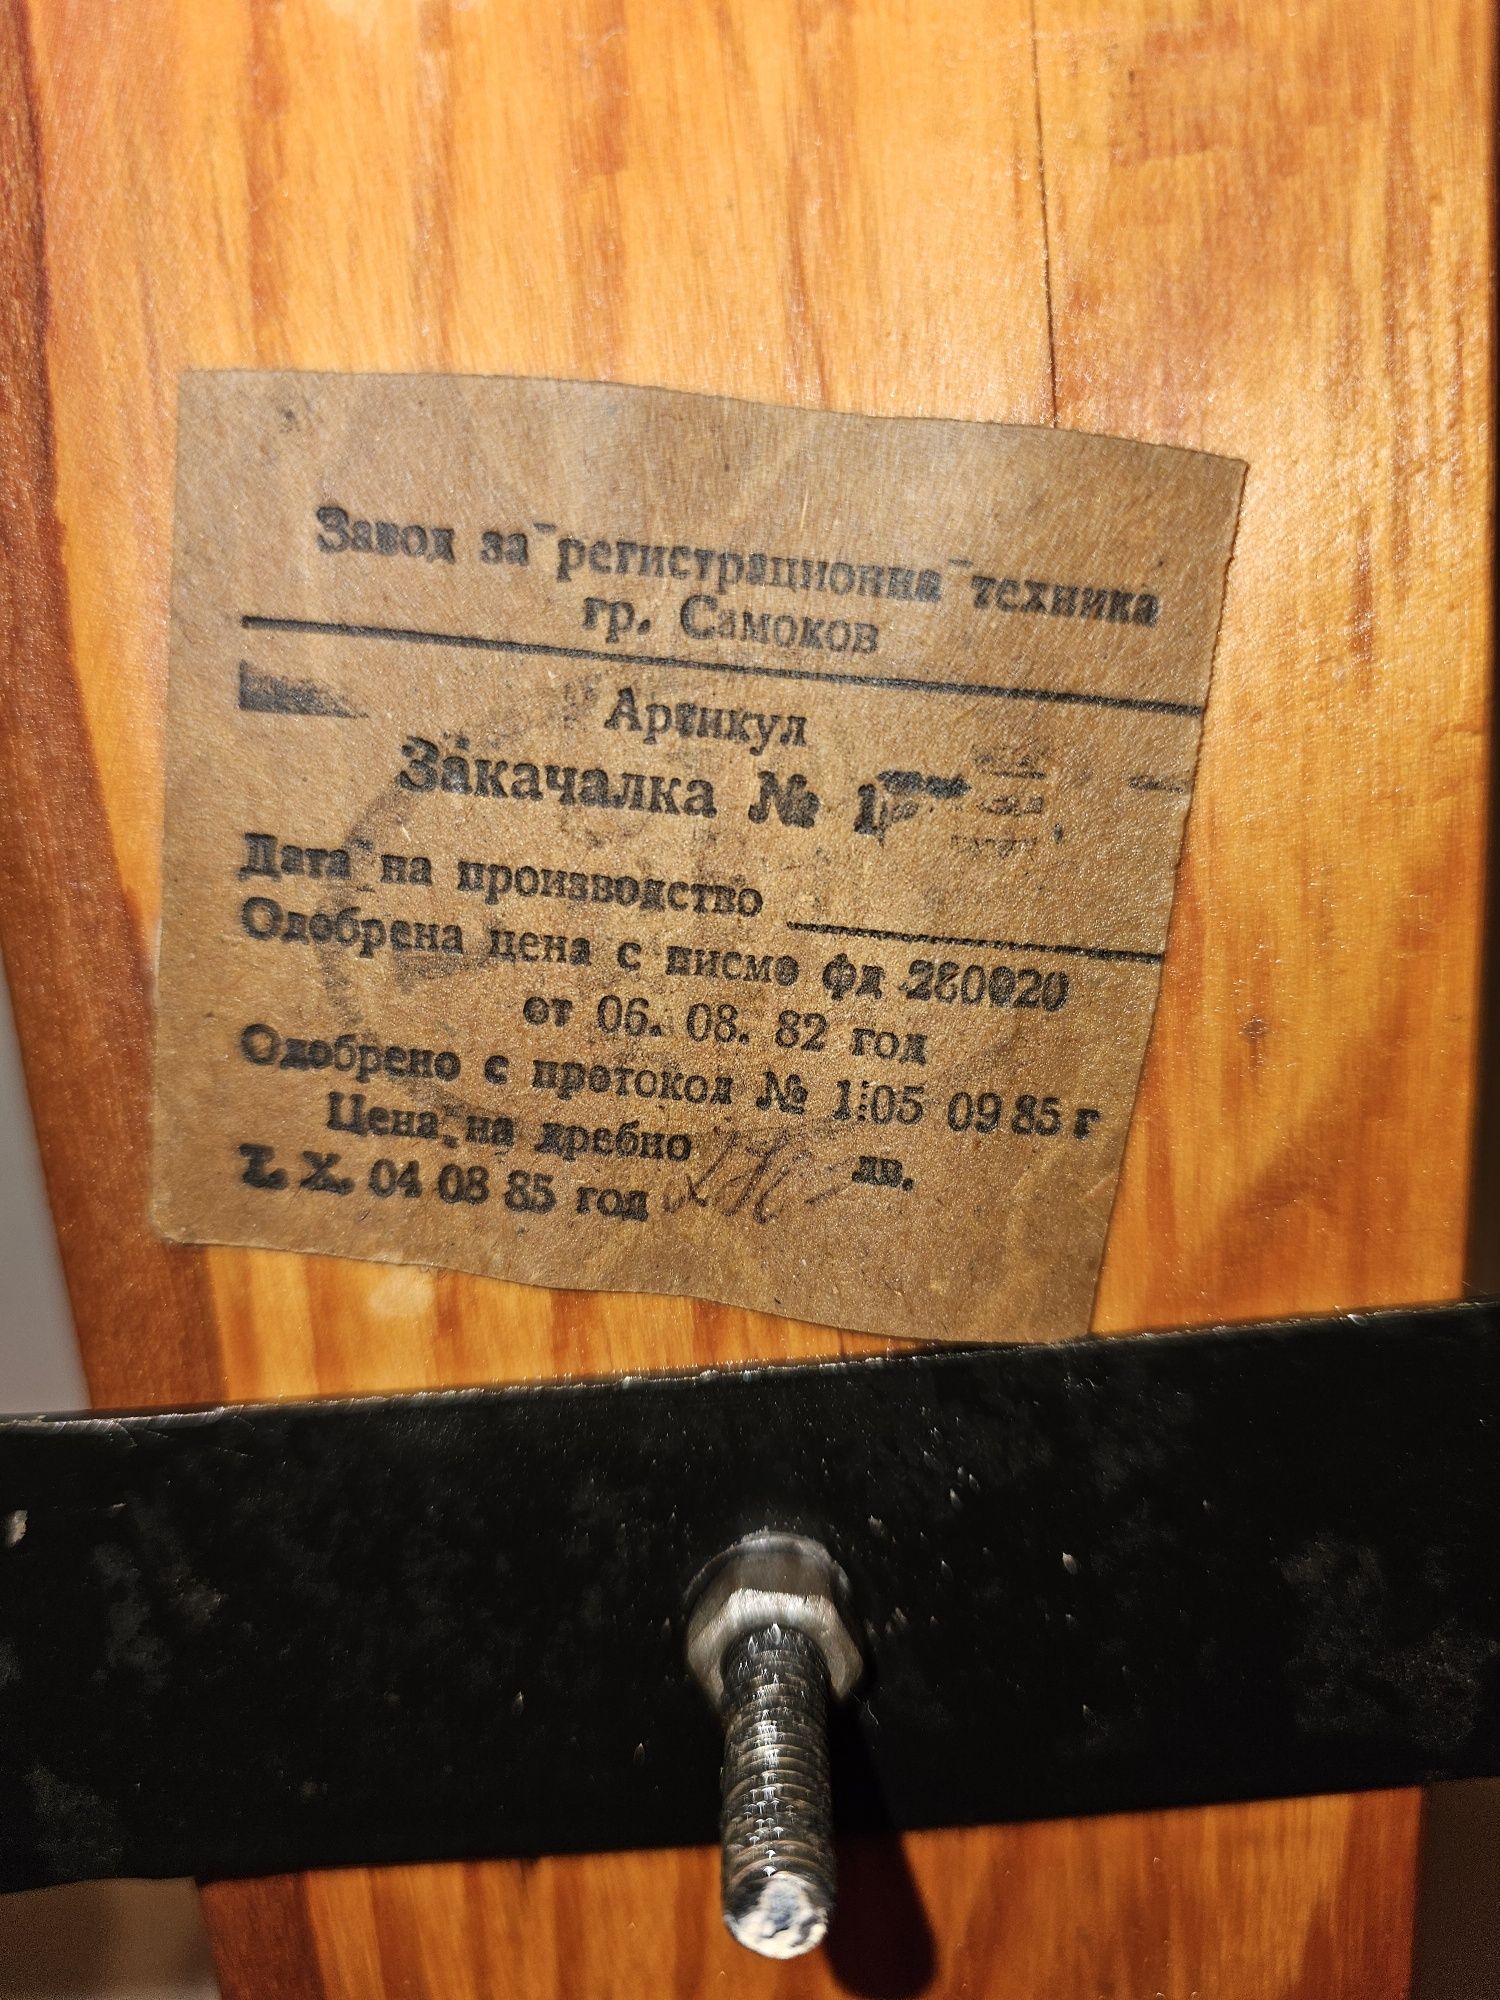 Завод за регистрационна техника
гр. Самоков
Артикул
Закачалка № 1
Дата на производство
Одобрена цена с писмо фд 280020
от 06. 08. 82 год
Одобрено с протокол № 1:05 09 85 г
Цена на дребно лв.
Т. Х. 04 08 85 год